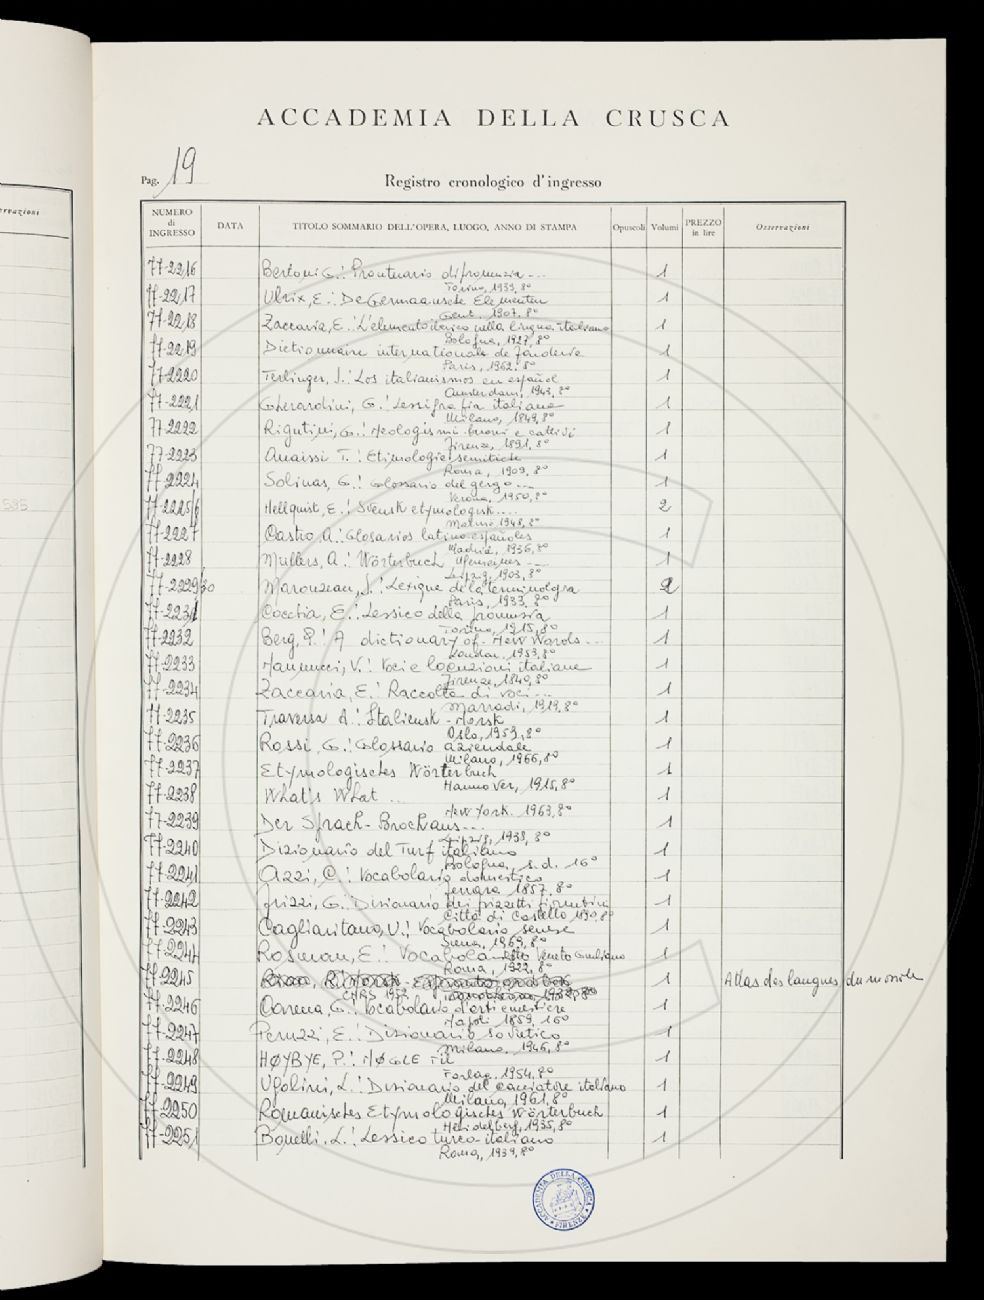 ACCADEMIA DELLA CRUSCA
Pag. 19
Registro cronologico d'ingresso
NUMERO di INGRESSO DATA TITOLO SOMMARIO DELL'OPERA, LUOGO, ANNO DI STAMPA Opuscoli Volumi PREZZO in lire Osservazioni
77-2216 Bertoni G.: Prontuario di pronunzia ... 1
Torino, 1939, 8°
77-2217 Ulrix, E.: De Germaansche Elementen 1
Gent. 1907, 8°
77-2218 Zaccaria, E.: L'elemento iberico nella lingua italiana 1
Bologna, 1927, 8°
77-2219 Dictionnaire internationale de fonderie 1
Paris, 1962. 8°
77-2220 Terlinger, J.: Los italianismos en español 1
Amsterdam, 1943, 8°
77-2221 Gherardini, G.: Lessigrafia italiana 1
Milano, 1849, 8°
77-2222 Rigutini, G.: Neologismi buoni e cattivi 1
Firenze, 1891, 8°
77-2223 Anaissi T.: Etimologie semitiche 1
Roma, 1909, 8°
77-2224 Solinas, G.: Glossario del gergo ... 1
Verona, 1950, 8°
77-2225/6 Hellquist, E.: Svensk etymologisk .... 2
1948, 8°
77-2227 Castro, A.: Glosarios latino-españoles 1
Madrid, 1936, 8°
77-2228 Mullers, A.: Wörterbuch 1
Leipzig, 1903, 8°
77-2229/30 Marouzeau, J.: Lexique de la terminologia 2
Paris, 1933, 8°
77-2231 Cocchia, E.: Lessico della pronunzia 1
Torino, 1915, 8°
77-2232 Berg, P.: A dictionary of New Words ... 1
London. 1953, 8°
77-2233 Nannucci, V.: Voci e locuzioni italiane 1
Firenze, 1840, 8°
77-2234 Zaccaria, E.: Raccolta di voci ... 1
Marradi, 1919, 8°
77-2235 Traversa A.: Italiensk - Norsk 1
Oslo, 1953, 8°
77-2236 Rossi, G.: Glossario aziendale 1
Milano, 1966, 8°
77-2237 Etymologisches Wörterbuch 1
Hannover, 1915, 8°
77-2238 What's What ... 1
New York. 1963, 8°
77-2239 Der Sprach-Brockhaus ... 1
Leipzig, 1938, 8°
77-2240 Dizionario del Turf italiano 1
Bologna, s.d. 16°
77-2241 Azzi, C.: Vocabolario domestico 1
Ferrara 1857, 8°
77-2242 Frizzi, G. Dizionario dei frizzetti fiorentini 1
Città di Castello 1890, 8°
77-2243 Cagliaritano, U.: Vocabolario senese 1
Siena, 1969, 8°
77-2244 Rosman, E.: Vocabolarietto Veneto Giuliano 1
Roma, 1922, 8°
77-2245 1 Atlas des langues du monde
CNRS 1952
77-2246 Carena, G.: Vocabolario d'arti e mestieri 1
Napoli 1859, 16°
77-2247 Peruzzi, E.: Dizionario sovietico 1
Milano, 1946, 8°
77-2248 HØYBYE, P.: NØGLE til 1
Forlag, 1954, 8°
77-2249 Ugolini, L.: Dizionario del cacciatore italiano 1
Milano, 1961, 8°
77-2250 Romanisches Etymologisches Wörterbuch 1
Heidelberg, 1935, 8°
77-2251 Bonelli, L.: Lessico turco-italiano 1
Roma, 1939, 8°
ACCADEMIA DELLA CRUSCA FIRENZE